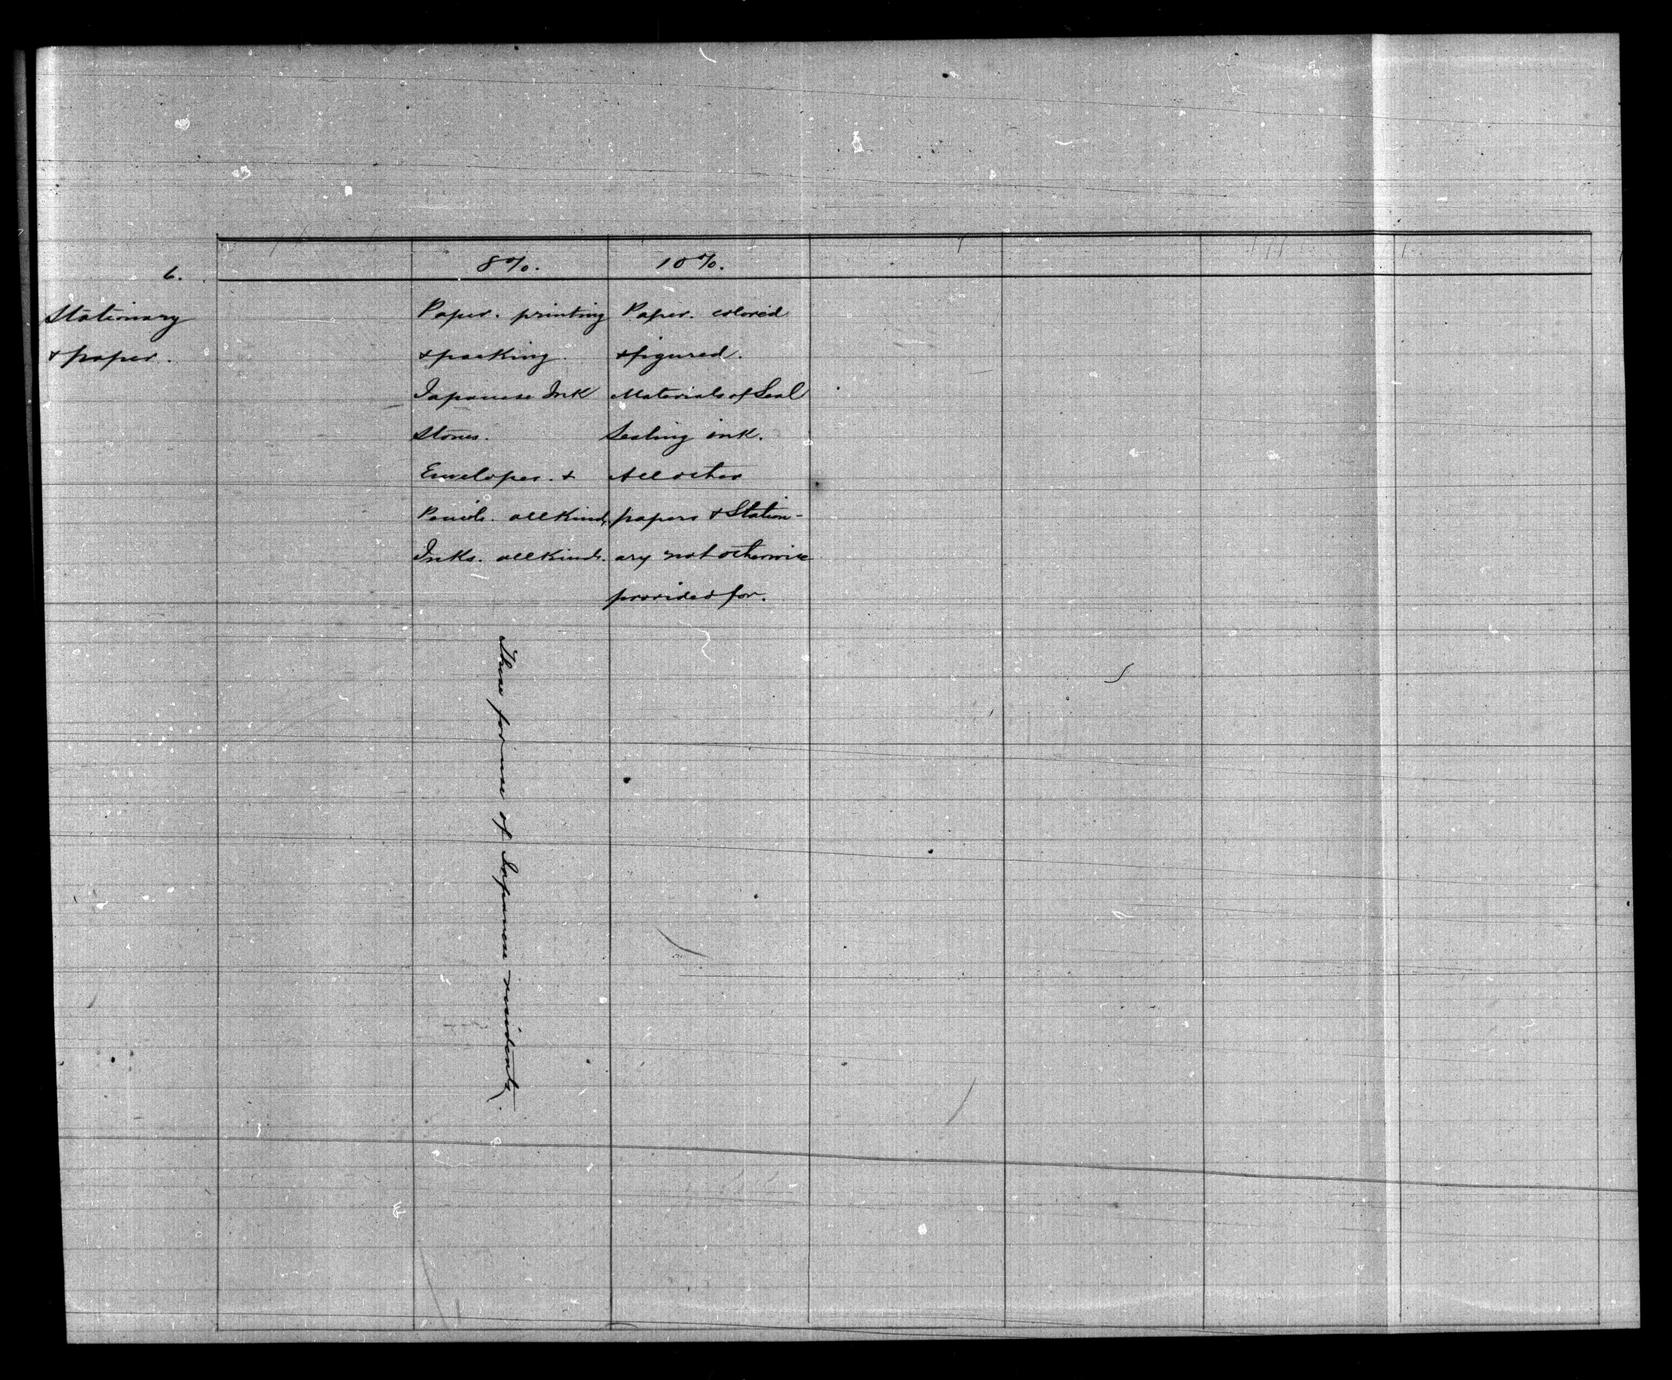 6.
Stationary
& paper.
8%.
Paper. printing
& packing.
Japanese Ink
Stones.
Envelopes. &
Pencils. all kinds,
Inks. all kinds.
These for use of Japanese residents.
10%.
Paper. colored
& figured.
Materials of Seal
Sealing ink.
All other
papers & Station-
ary not otherwise
provided for.